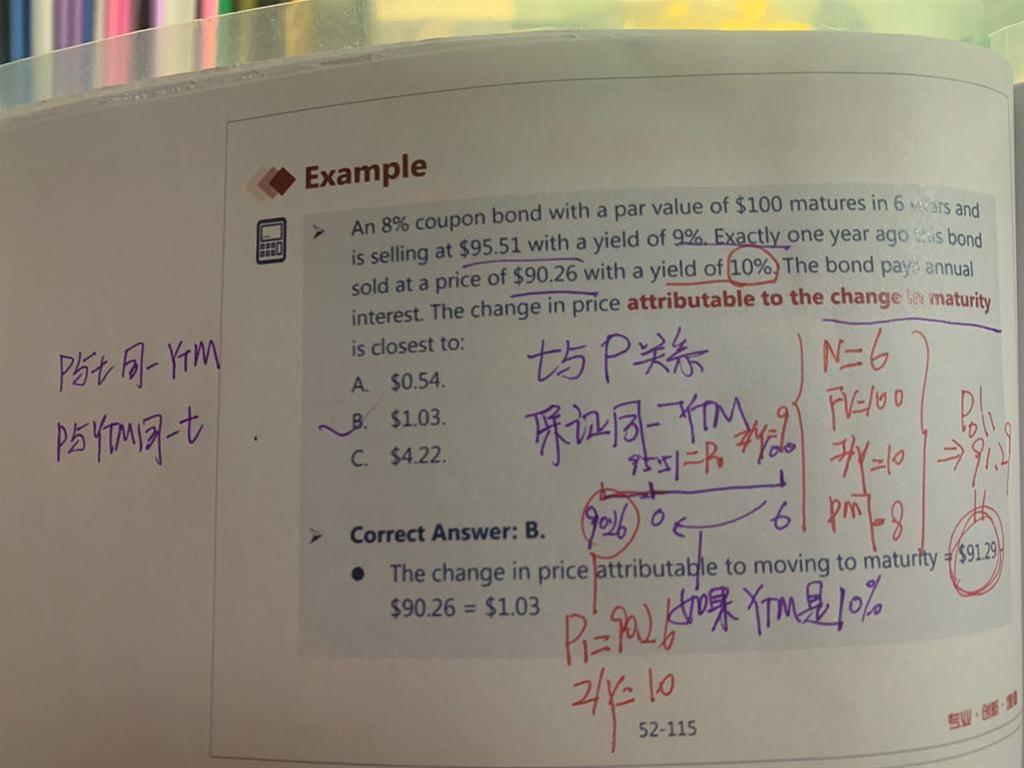 Example
An 8% coupon bond with a par value of $100 matures in 6 years and
is selling at $95.51 with a yield of 9%. Exactly one year ago this bond
sold at a price of $90.26 with a yield of 10%. The bond pays annual
interest. The change in price attributable to the change in maturity
is closest to:
A. $0.54.
B. $1.03.
C. $4.22.
P与t 同一 YTM
P与YTM同一t
t与P关系
保证同一YTM
I/Y=9
95.51=P₀
90.26
0
6
N=6
FV=100
I/Y=10
PMT=8
⇒ 91.29
Correct Answer: B.
The change in price attributable to moving to maturity = $91.29-
$90.26 = $1.03
如果YTM是10%
P₁=90.26
I/Y=10
52-115
专业·创新·增值